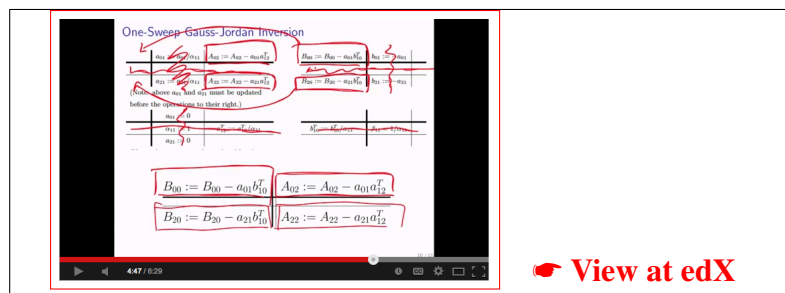 One-Sweep Gauss-Jordan Inversion
a₀₁ := a₀₁/α₁₁ A₀₂ := A₀₂ − a₀₁a₁₂ᵀ B₀₀ := B₀₀ − a₀₁b₁₀ᵀ b₀₁ := −a₀₁
a₂₁ := a₂₁/α₁₁ A₂₂ := A₂₂ − a₂₁a₁₂ᵀ B₂₀ := B₂₀ − a₂₁b₁₀ᵀ b₂₁ := −a₂₁
(Note: above a₀₁ and a₂₁ must be updated
before the operations to their right.)
a₀₁ := 0
α₁₁ := 1 a₁₂ᵀ := a₁₂ᵀ/α₁₁ b₁₀ᵀ := b₁₀ᵀ/α₁₁ β₁₁ := 1/α₁₁
a₂₁ := 0
B₀₀ := B₀₀ − a₀₁b₁₀ᵀ A₀₂ := A₀₂ − a₀₁a₁₂ᵀ
B₂₀ := B₂₀ − a₂₁b₁₀ᵀ A₂₂ := A₂₂ − a₂₁a₁₂ᵀ
4:47 / 6:29
☛ View at edX